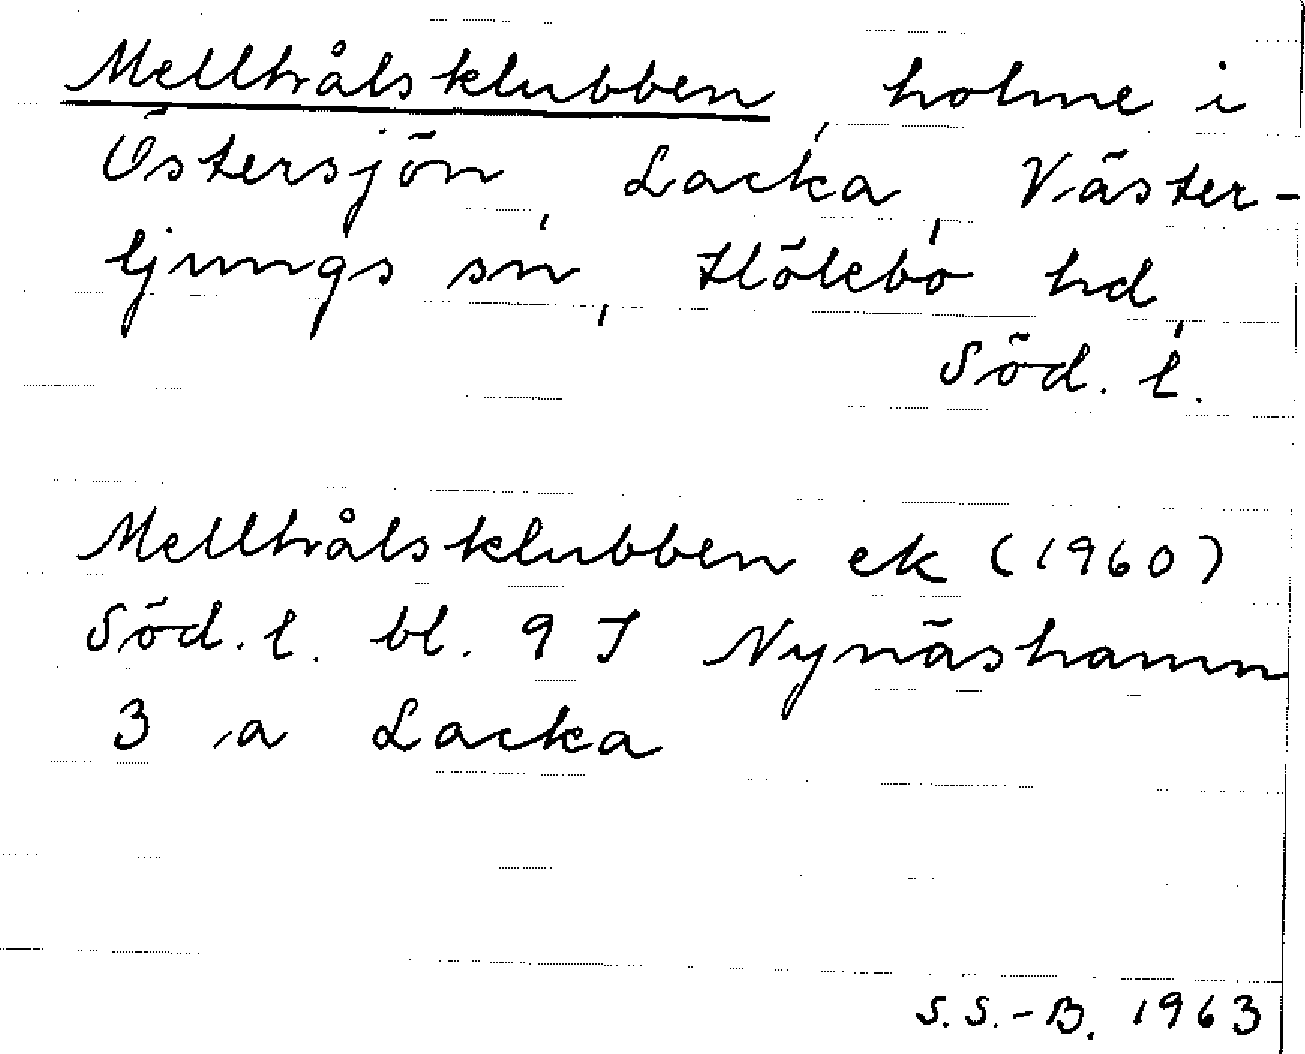 Melltrålsklubben, holme i
Östersjön, Lacka, Väster-
ljungs sn, Hölebo hd,
Söd. l.
Melltrålsklubben ek (1960)
Söd. l. bl. 9 I Nynäshamn
3 a Lacka
S.S.-B. 1963